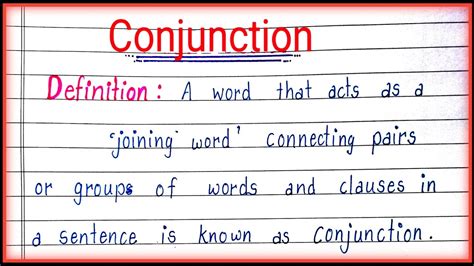 Conjunction
Definition : A word that acts as a
'joining word' connecting pairs
or groups of words and clauses in
a sentence is known as conjunction.